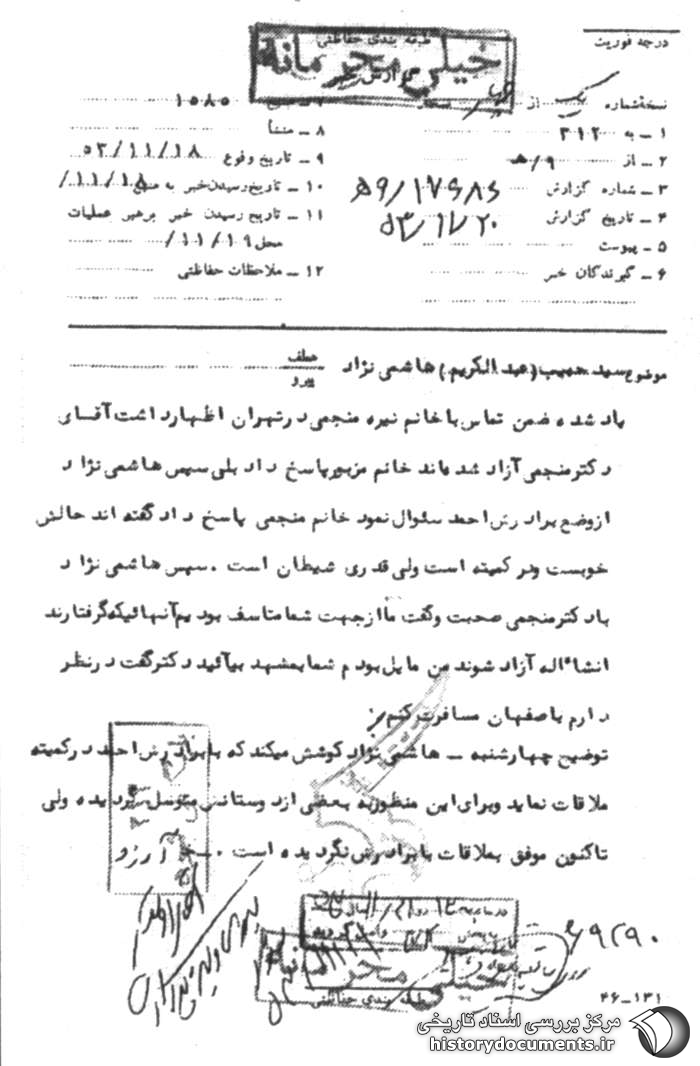 درجه فوریت
طبقه بندی حفاظتی
خیلی محرمانه
گزارش خبر
نسخه شماره یک از
۱ – به ۳۱۲
۲ – از ۹/ه‍
۳ – شماره گزارش ۱۷۶۸۶/۹ه‍
۴ – تاریخ گزارش ۵۳/۱۱/۲۰
۵ – پیوست
۶ – گیرندگان خبر
۱۵۸۵
۸ – منشأ
۹ – تاریخ وقوع ۵۳/۱۱/۱۸
۱۰ – تاریخ رسیدن خبر به منبع ۱۱/۱۸/
۱۱ – تاریخ رسیدن خبر برهبر عملیات
محل ۱۱/۱۹/
۱۲ – ملاحظات حفاظتی
موضوع سید حبیب (عبدالکریم) هاشمی نژاد
عطف
پیرو
یاد شده ضمن تماس با خانم نیره منجمی در تهران اظهار داشت آقای
دکتر منجمی آزاد شده اند خانم مزبور پاسخ داد بلی سپس هاشمی نژاد
از وضع برادرش احمد سئوال نمود خانم منجمی پاسخ داد گفته اند حالش
خوبست ودر کمیته است ولی قدری شیطان است . سپس هاشمی نژاد
با دکتر منجمی صحبت وگفت ما از جهت شما متاسف بودیم آنهائیکه گرفتارند
انشاءاله آزاد شوند من مایل بودم شما بمشهد بیآئید دکتر گفت در نظر
دارم باصفهان مسافرت کنم
توضیح چهارشنبه – هاشمی نژاد کوشش میکند که با برادرش احمد در کمیته
ملاقات نماید وبرای این منظور به بعضی از دوستانش متوسل گردیده ولی
تاکنون موفق بملاقات با برادرش نگردیده است .
آرزو
خیلی محرمانه
طبقه بندی حفاظتی
۴۶–۱۳۱
مرکز بررسی اسناد تاریخی
historydocuments.ir